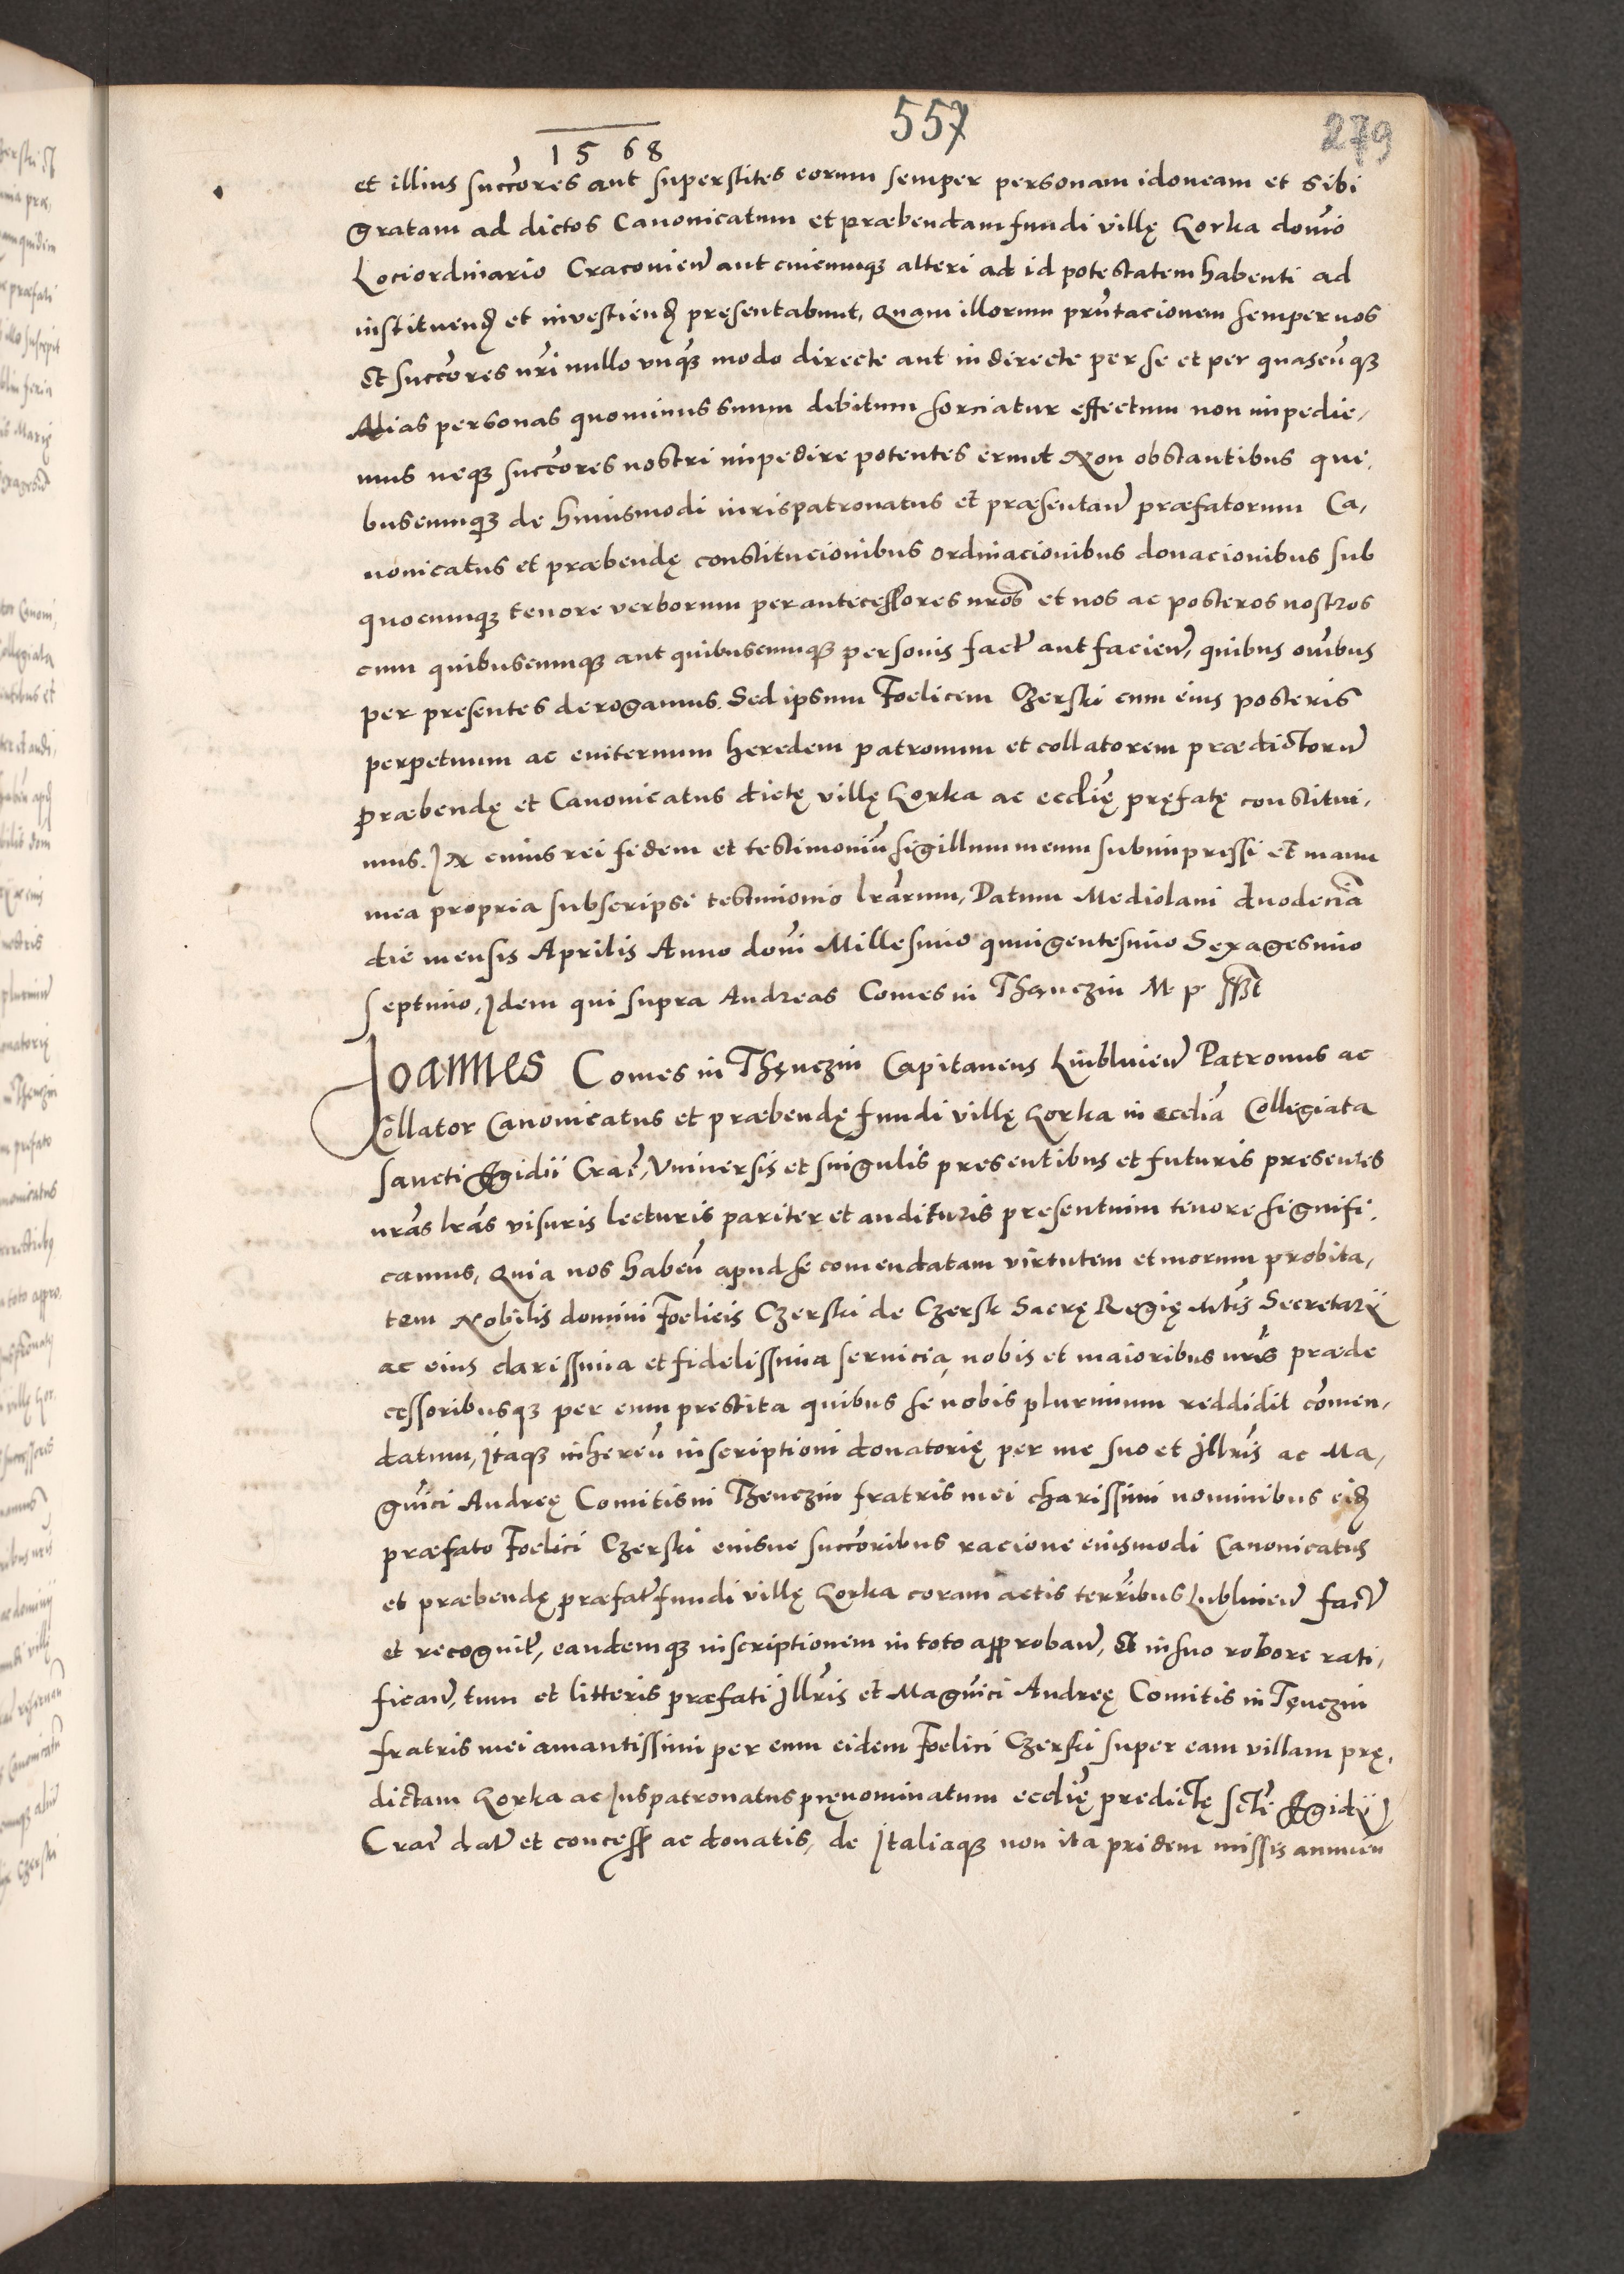 557
279
1568
et illius succores aut superstites eorum semper personam idoneam et sibi
gratam ad dictos Canonicatum et præbendam fundi villę Gorka domio
Lociordinario Cracovien aut cuicumqȝ alteri ad id potestatem habenti ad
instituend et investiend pręsentabunt, Quam illorum prntacionem semper nos
Et succores nri nullo unqȝ modo directe aut indirecte per se et per quascuqȝ
Alias personas quominus suum debitum sorciatur effectum non impedie,
mus neqȝ succores nostri impedire potentes erunt Non obstantibus qui,
buscumqȝ de huiusmodi iurispatronatus et præsentan præfatorum Ca,
nonicatus et præbendę constitucionibus ordinacionibus donacionibus sub
quocumqȝ tenore verborum per antecessores nros et nos ac posteros nostros
cum quibuscumqȝ aut quibuscumqȝ personis fact aut facien, quibus omibus
per presentes derogamus. Sed ipsum Foelicem Czerski cum eius posteris
perpetuum ac eviternum heredem patronum et collatorem prædictoru
Præbendę et Canonicatus dictę villę Gorka ac ecclię pręfatę constitui,
mus. In cuius rei fidem et testimoniu sigillum meum subimpressi et manu
mea propria subscripsi testimonio lrarum, Datum Mediolani duodecia
die mensis Aprilis Anno domi Millesimo quingentesimo Sexagesimo
Septimo, Idem qui supra Andreas Comes in Thęnczin M p sst
Joannes Comes in Thęnczin Capitaneus Lublinien Patronus ac
Collator Canonicatus et præbendę fundi villę Gorka in ecclia Collegiata
Sancti Egidii Crac, Universis et singulis presentibus et futuris presentes
nras lras visuris lecturis pariter et audituris presentium tenore signifi,
camus, Quia nos habeu apud se comendatam virtutem et morum probita,
tem Nobilis domini Foelicis Czerski de Czersk Sacrę Regię Mtis Secretarii
ac eius clarissima et fidelissima servicia nobis et maioribus nris præde
cessoribusqȝ per eum prestita quibus se nobis plurimum reddidit comen,
datum, Itaqȝ inhereu inscriptioni donatorię per me suo et Illris ac Ma,
gnici Andreę Comitis in Thenczin fratris mei charissimi nominibus eid
præfato Foelici Czerski eiusve succoribus racione eiusmodi Canonicatus
et præbendę præfat fundi villę Gorka coram actis terribus Lublinien fact
et recognit, eandemqȝ inscriptionem in toto approban, Et in suo robore rati,
fican, tum et litteris præfati Illris et Magnici Andreę Comitis in Tęnczin
fratris mei amantissimi per eum eidem Foelici Czerski super eam villam prę,
dictam Gorka ac Iuspatronatus pręnominatum ecclię predictę scti Egidij
Crac dat et concess ac donatis, de Italiaqȝ non ita pridem missis annuen